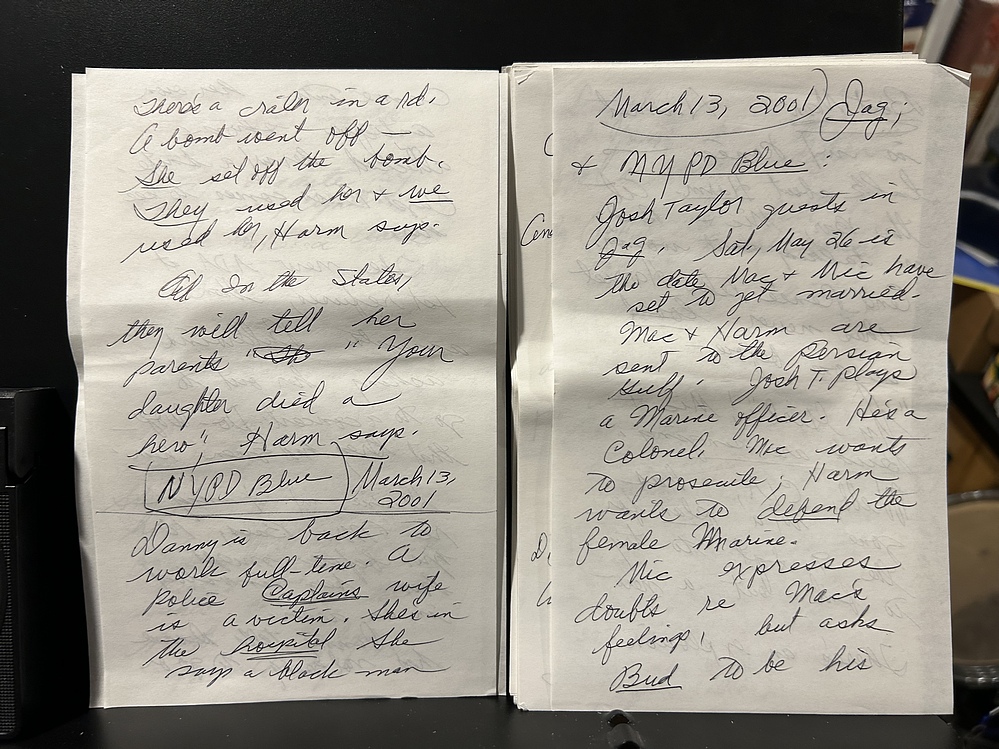 There's a crater in a rd.
A bomb went off —
She set off the bomb.
They used her & we
used her, Harm says.
In the States,
they will tell her
parents " " Your
daughter died a
hero", Harm says.
NYPD Blue March 13,
2001
Danny is back to
work full-time. A
police Captains wife
is a victim. She's in
the hospital She
says a black man
March 13, 2001 Jag;
& NYPD Blue:
Josh Taylor guests in
Jag. Sat, May 26 is
the date Mac & Mic have
set to get married.
Mac & Harm are
sent to the Persian
Gulf. Josh T. plays
a Marine officer. He's a
Colonel. Mic wants
to prosecute; Harm
wants to defend the
female Marine.
Mic expresses
doubts re Mac's
feelings, but asks
Bud to be his